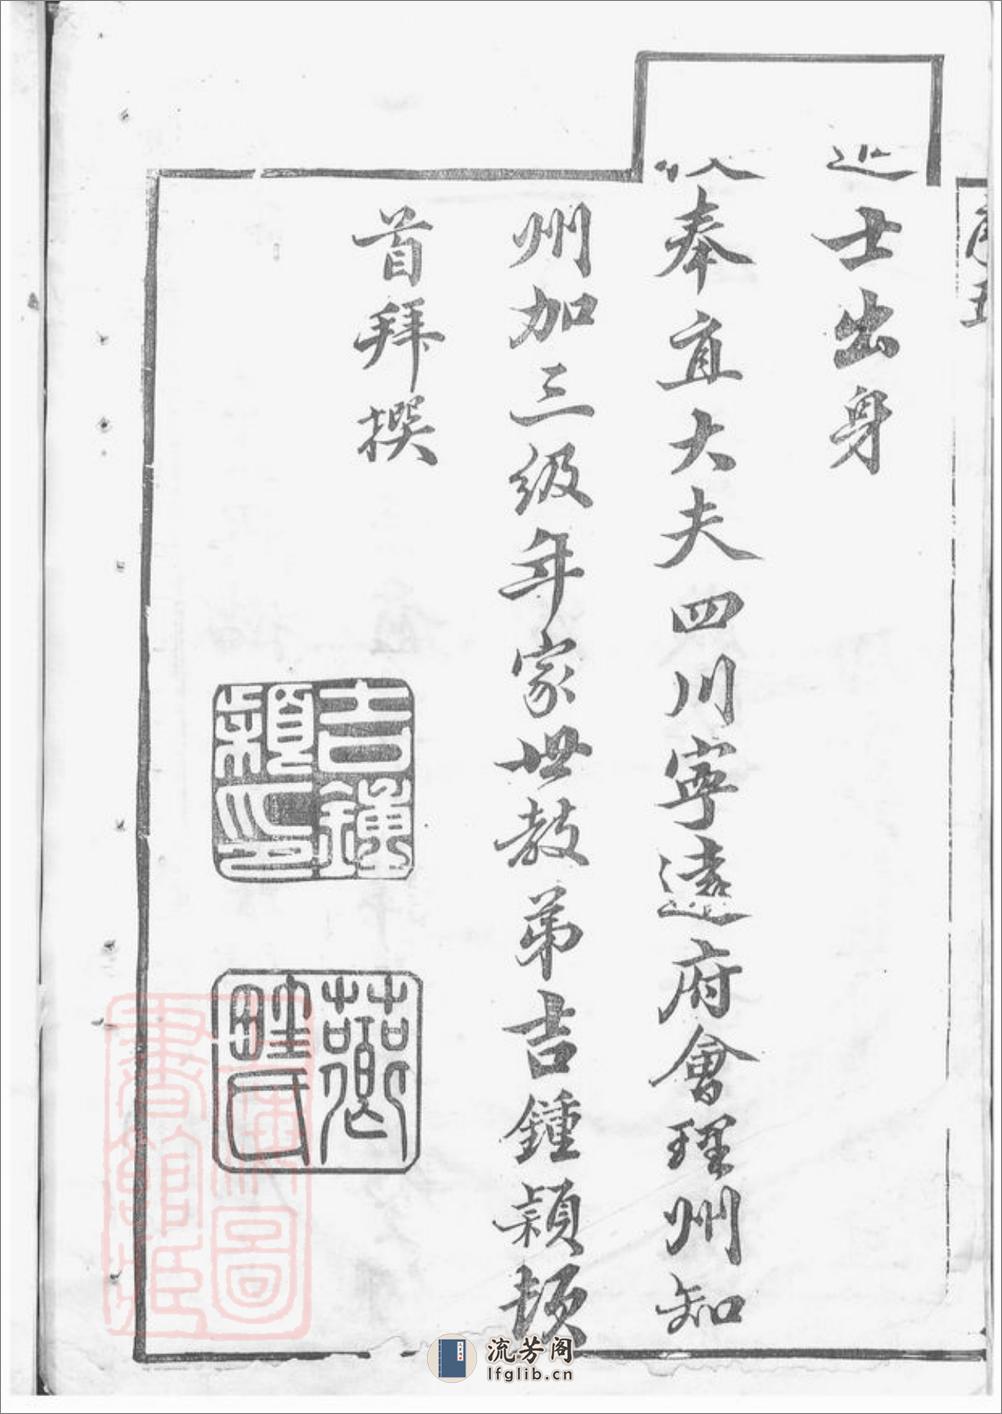 士出身
奉直大夫四川寧遠府會理州知
州加三級年家世教弟吉鍾頴頓
首拜撰
吉鍾
頴印
薌
畦氏
圖
書館藏
流芳阁
lfglib.cn